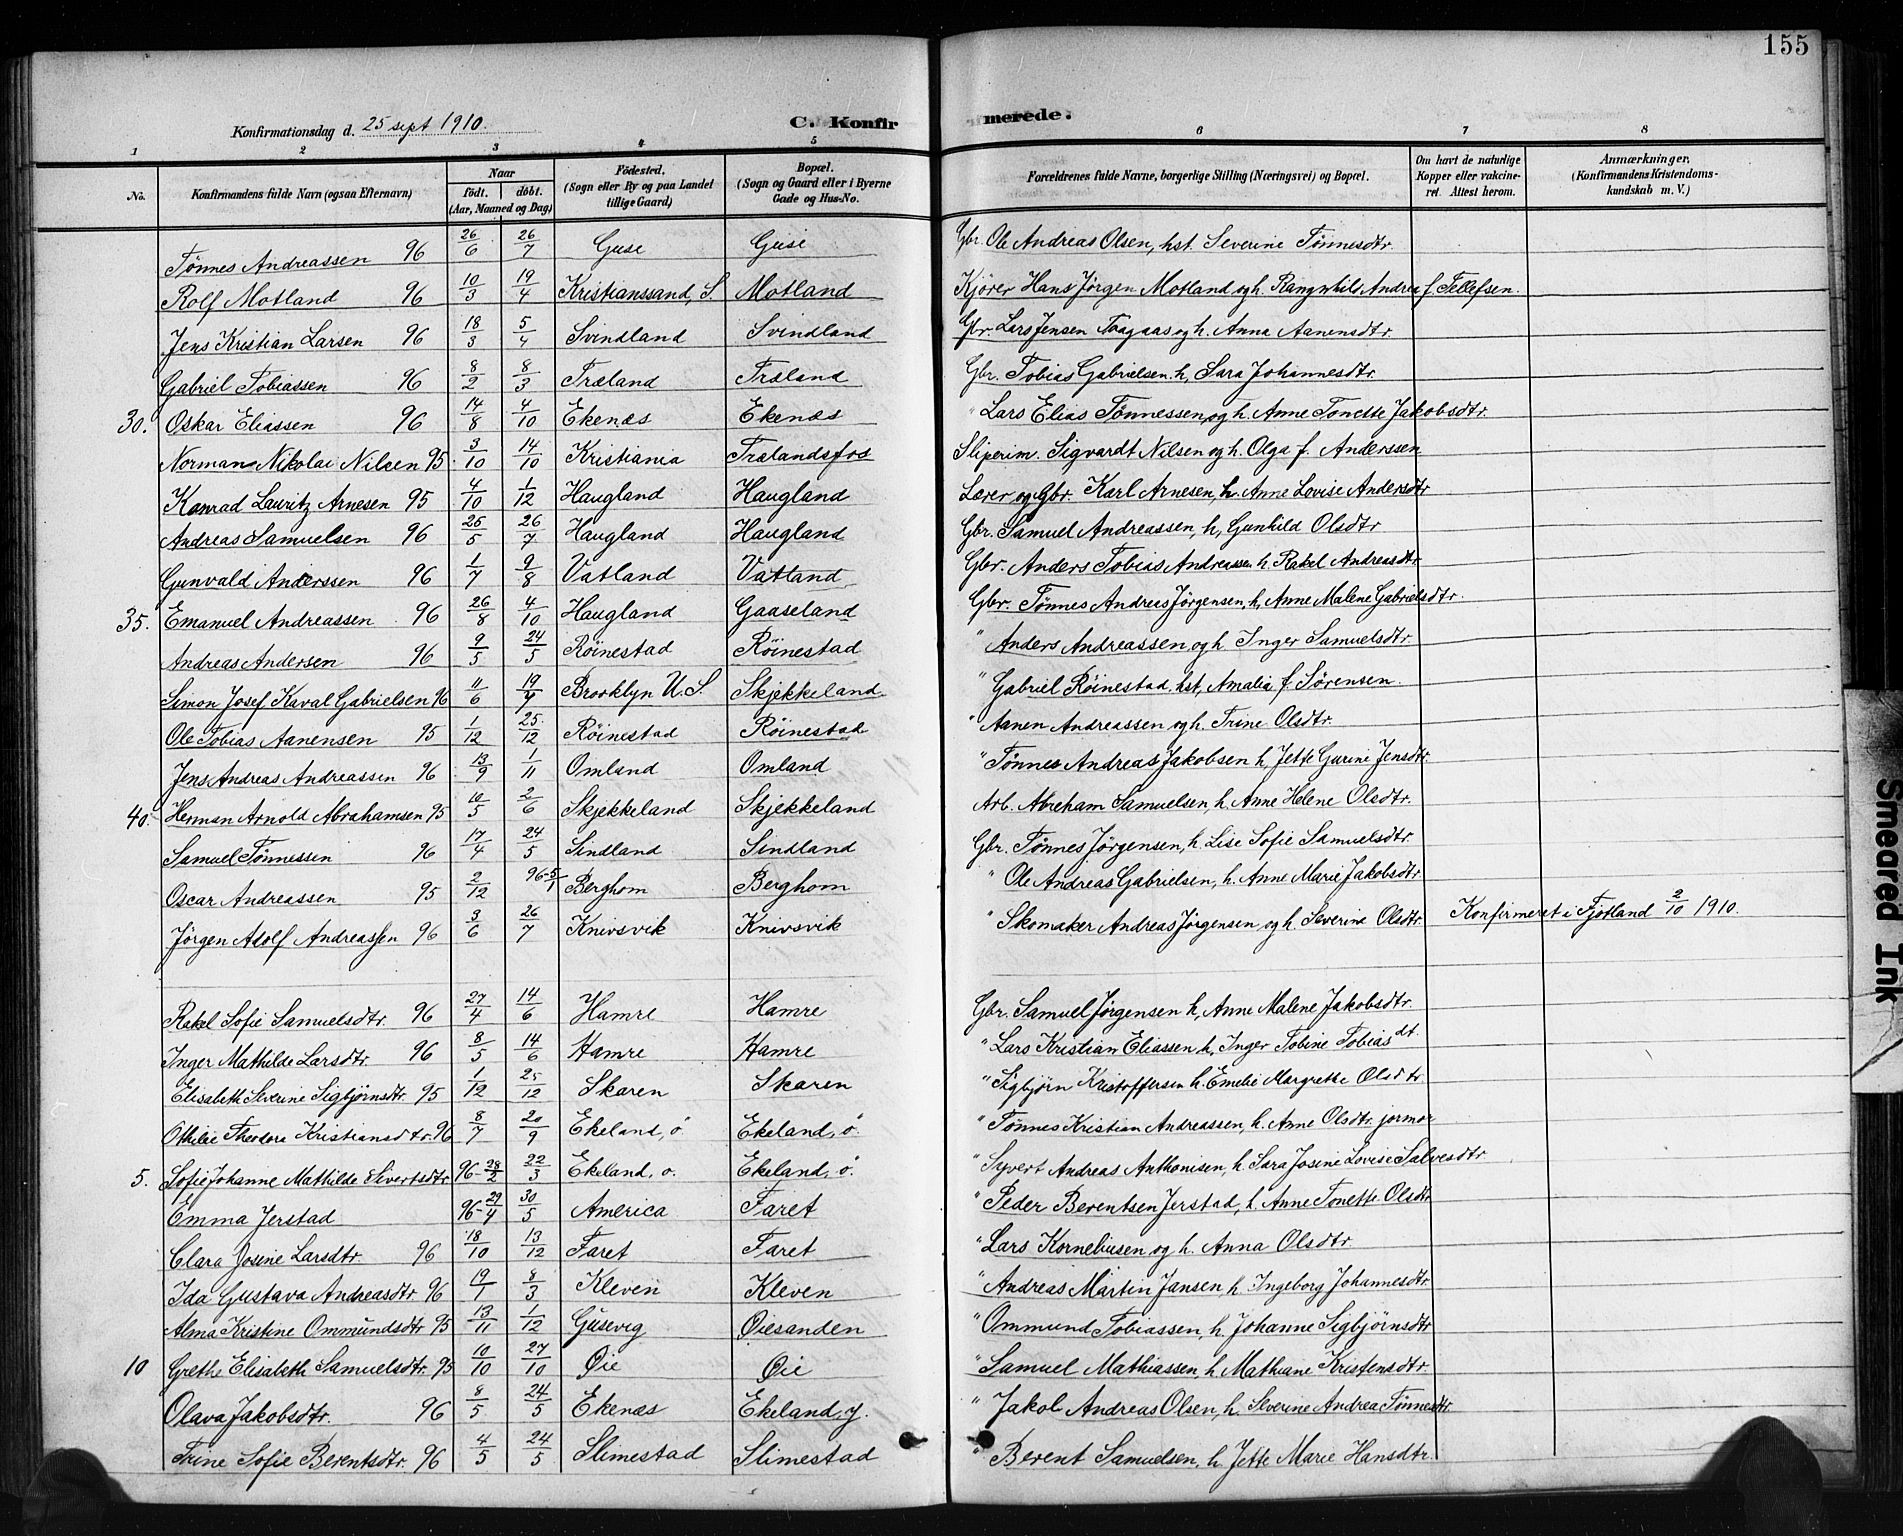 155
Konfirmationsdag d. 25 sept 1910. C. Konfirmerede.
1 2 3 4 5 6 7 8
No. Konfirmandens fulde Navn (ogsaa Efternavn) Naar født. døbt. (Aar, Maaned og Dag) Fødested. (Sogn eller By og paa Landet tillige Gaard) Bopæl. (Sogn og Gaard eller i Byerne Gade og Hus-No. Forældrenes fulde Navne, borgerlige Stilling (Næringsvei) og Bopæl. Om havt de naturlige Kopper eller vakcineret. Attest herom. Anmærkninger. (Konfirmandens Kristendomskundskab m. V.)
Tønnes Andreassen 96 26/6 26/7 Guse Guse Gbr. Ole Andreas Olsen, hst. Severine Tønnesdtr.
Rolf Motland 96 10/3 19/4 Kristianssand, S. Motland Kjører Hans Jørgen Motland og h. Rangnhild Andrea f. Tellefsen.
Jens Kristian Larsen 96 18/3 5/4 Svindland Svindland Gbr. Lars Jensen Taagaas og h. Anna Aanensdtr.
Gabriel Tobiassen 96 8/2 8/3 Træland Træland Gbr. Tobias Gabrielsen. h, Sara Johannesdtr.
30. Oskar Eliassen 96 14/8 4/10 Ekenæs Ekenæs " Lars Elias Tønnessen, og h. Anne Tonette Jakobsdtr.
Norman Nikolai Nilsen 95 3/10 14/10 Kristiania Trælandsfos Sliperim. Sigvardt Nilsen og h. Olga f. Anderssen
Konrad Lauritz Arnesen 95 4/10 1/12 Haugland Haugland Lærer og Gbr. Karl Arnesen, h. Anne Lovise Andersdtr
Andreas Samuelsen 96 25/5 26/7 Haugland Haugland Gbr. Samuel Andreassen, h, Gunhild Olsdtr
Gunvald Anderssen 96 1/7 9/8 Vatland Vatland Gbr. Anders Tobias Andreassen h. Rakel Andreasdtr.
35. Emanuel Andreassen 96 26/8 4/10 Haugland Gaaseland Gbr. Tønnes Andreas Jørgensen, h, Anne Malene Gabrielsdtr.
Andreas Andersen 96 9/5 24/5 Röinestad Röinestad " Anders Andreassen og h Inger Samuelsdtr.
Simon Josef Kaval Gabrielsen 96 11/6 19/7 Brooklyn U.S. Skjekkeland " Gabriel Röinestad. hst, Amalia f. Sørensen.
Ole Tobias Aanensen 95 1/12 25/12 Röinestad Röinestad " Aanen Andreassen og h. Trine Olsdtr.
Jens Andreas Andreassen 96 13/9 1/11 Omland Omland " Tønnes Andreas Jakobsen h, Jette Gurine Jensdtr.
40. Herman Arnold Abrahamsen 95 10/5 2/6 Skjekkeland Skjekkeland Arb. Abreham Samuelsen, h, Anne Helene Olsdtr.
Samuel Tønnessen 96 17/4 24/5 Sindland Sindland Gbr. Tønnes Jørgensen, h. Lise Sofie Samuelsdtr.
Oscar Andreassen 95 2/12 96-5/1 Berghom Berghom " Ole Andreas Gabrielsen, h. Anne Marie Jakobsdtr
Jørgen Adolf Andreassen 96 3/6 26/7 Knivsvik Knivsvik " Skomaker Andreas Jørgensen og h. Severine Olsdtr. Konfirmeret i Fjotland 2/10 1910.
Rakel Sofie Samuelsdtr. 96 27/4 14/6 Hamre Hamre Gbr. Samuel Jørgensen h, Anne Malene Jakobsdtr.
Inger Mathilde Larsdtr. 96 8/5 14/6 Hamre Hamre " Lars Kristian Eliassen h, Inger Tobine Tobiasdt.
Elisabeth Severine Sigbjørnsdtr. 95 1/12 25/12 Skaren Skaren " Sigbjørn Kristoffersen h. Emelie Margrethe Olsdtr.
Othilie Theodora Kristiansdtr. 96 8/7 20/9 Ekeland, ö Ekeland, ö. " Tønnes Kristian Andreassen, h. Anne Olsdtr. jormor
5. Sofie Johanne Mathilde Sivertsdtr 96-28/2 22/3 Ekeland, o. Ekeland, ö. " Syvert Andreas Anthonisen, h. Sara Josine Lovise Salvesdtr
Emma Jerstad 96-29/4 30/5 America Faret " Peder Berentsen Jerstad, h. Anne Tonette Olsdtr
Clara Josine Larsdtr. 96 18/10 13/12 Faret Faret " Lars Korneliusen og h. Anna Olsdtr
Ida Gustava Andreasdtr 96 19/1 8/3 Kleven Kleven " Andreas Martin Jansen, h. Ingeborg Johannesdtr
Alma Kristine Ommundsdtr 95 13/11 1/12 Gusevig Øiesanden " Ommund Tobiassen, h. Johanne Sigbjørnsdtr
10 Grethe Elisabeth Samuelsdtr. 95 10/10 27/10 Øie Øie " Samuel Mathiassen, h. Mathiane Kristensdtr.
Olava Jakobsdtr. 96 8/5 24/5 Ekenæs Ekeland, y. " Jakob Andreas Olsen, h. Severine Andrea Tønnesdtr
Trine Sofie Berentsdtr. 96 4/5 24/5 Slimestad Slimestad " Berent Samuelsen, h. Jette Marie Hansdtr.
Smeared Ink